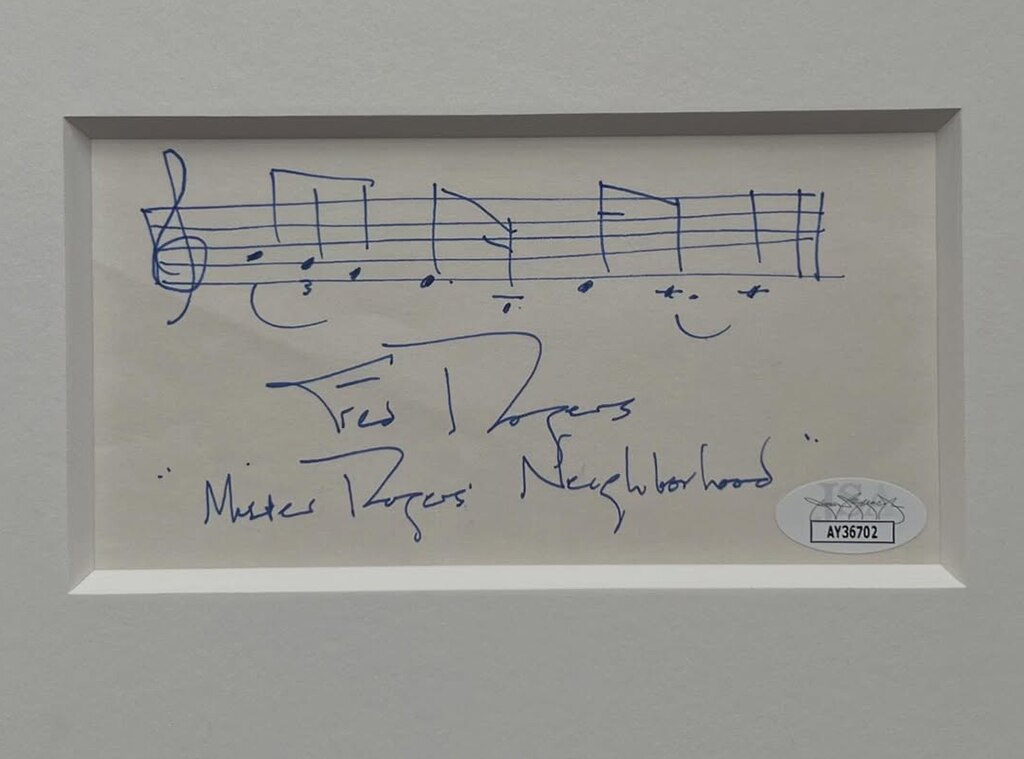 3
Fred Rogers
"Mister Rogers' Neighborhood"
JSA
AY36702